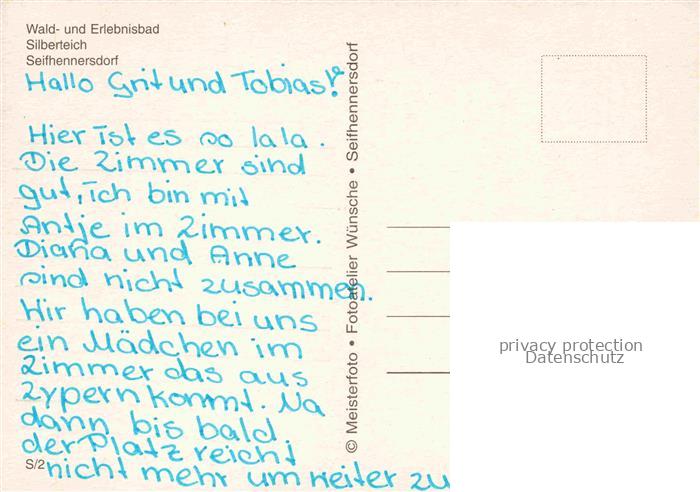 Wald- und Erlebnisbad
Silberteich
Seifhennersdorf
Hallo Grit und Tobias!
Hier ist es so lala.
Die Zimmer sind
gut, ich bin mit
Antje im Zimmer.
Diana und Anne
sind nicht zusammen.
Wir haben bei uns
ein Mädchen im
Zimmer das aus
Zypern kommt. Na
dann bis bald.
der Platz reicht
nicht mehr um weiter zu
S/2
© Meisterfoto • Fotoatelier Wünsche • Seifhennersdorf
privacy protection
Datenschutz